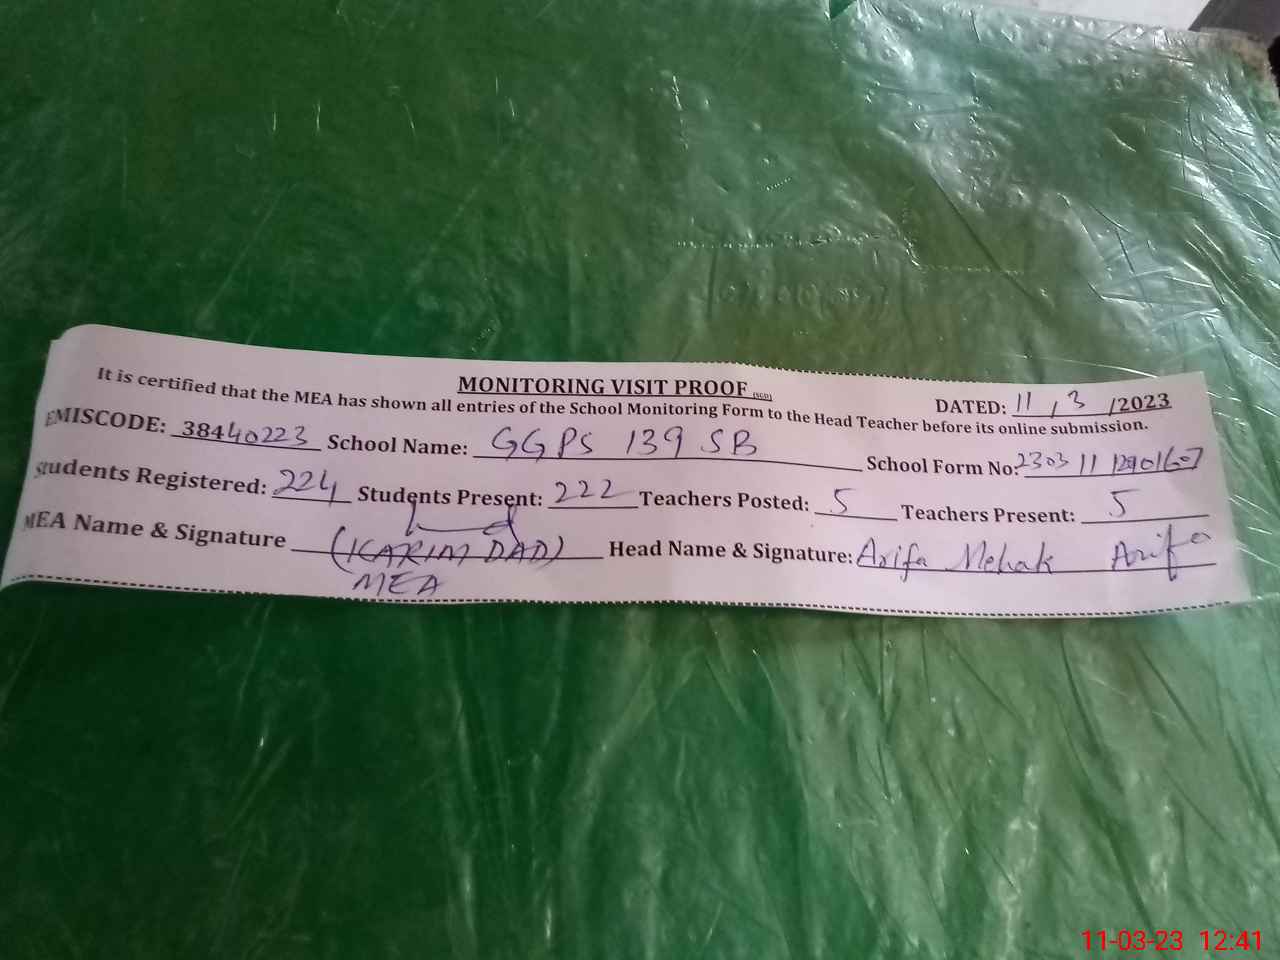 MONITORING VISIT PROOF (SGD)
DATED: 11 / 3 /2023
It is certified that the MEA has shown all entries of the School Monitoring Form to the Head Teacher before its online submission.
EMISCODE: 38440223 School Name: GGPS 139 SB School Form No:
Students Registered: 224 Students Present: 222 Teachers Posted: 5 Teachers Present: 5
MEA Name & Signature (KARIM DAD) Head Name & Signature: Arifa Mehak Arifa
MEA
11-03-23 12:41